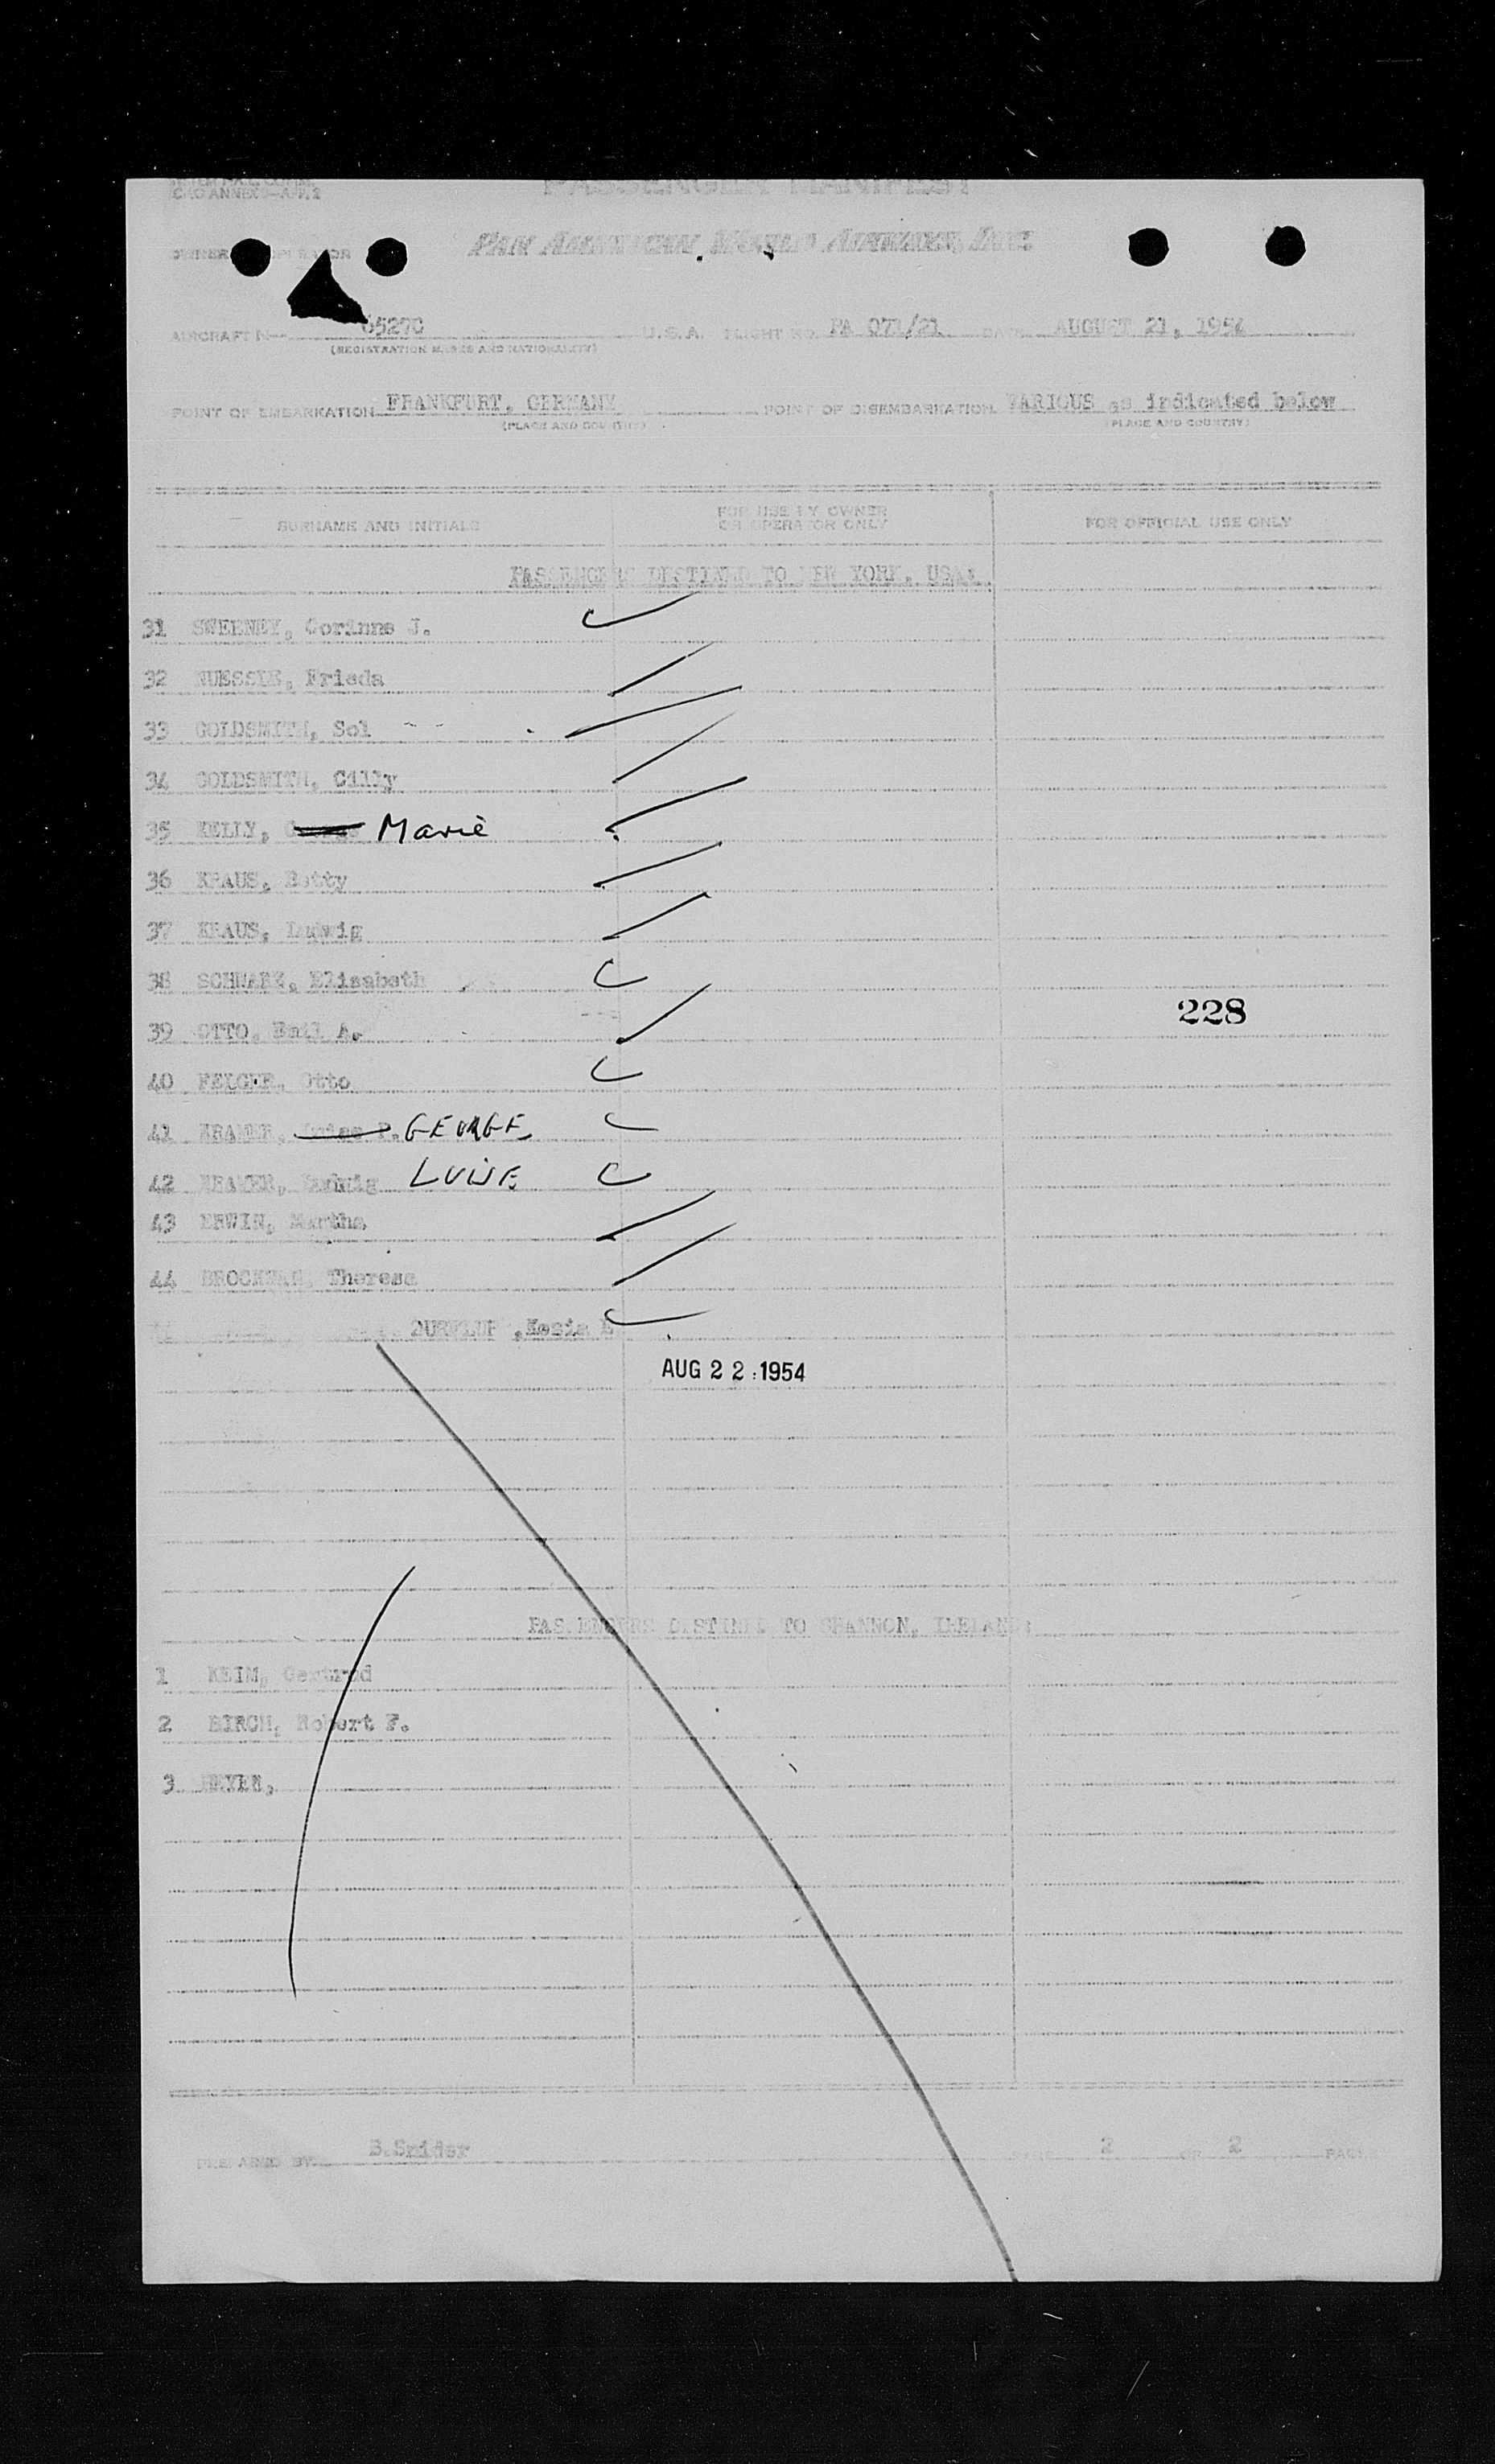 CAO ANNEX
PASSENGER MANIFEST
OWNER OR OPERATOR PAN AMERICAN WORLD AIRWAYS, INC.
AIRCRAFT N-- 6527C U.S.A. FLIGHT NO. PA 071/21 DATE AUGUST 21, 1954
(REGISTRATION MARKS AND NATIONALITY)
POINT OF EMBARKATION FRANKFURT, GERMANY POINT OF DISEMBARKATION VARIOUS as indicated below
(PLACE AND COUNTRY) (PLACE AND COUNTRY)
SURNAME AND INITIALS FOR USE BY OWNER OR OPERATOR ONLY FOR OFFICIAL USE ONLY
PASSENGERS DESTINED TO NEW YORK, USA:
31 SWEENEY, Corinne J.
32 Frieda
33 GOLDSMITH, Sol
34 GOLDSMITH, Cilly
35 KELLY, Marie
36 KRAUS, Betty
37 KRAUS, Ludwig
38 SCHWARZ, Elisabeth
39 OTTO, Emil A.
228
40 Otto
41 GEORGE
42 Ludwig LUISE
43 ERWIN, Martha
44 Theresa
AUG 22 1954
PASSENGERS DESTINED TO SHANNON, IRELAND:
1 KEIM, Gertrud
2 BIRCH, Robert F.
3
PREPARED BY B.Snider PAGE 2 OF 2 PAGES